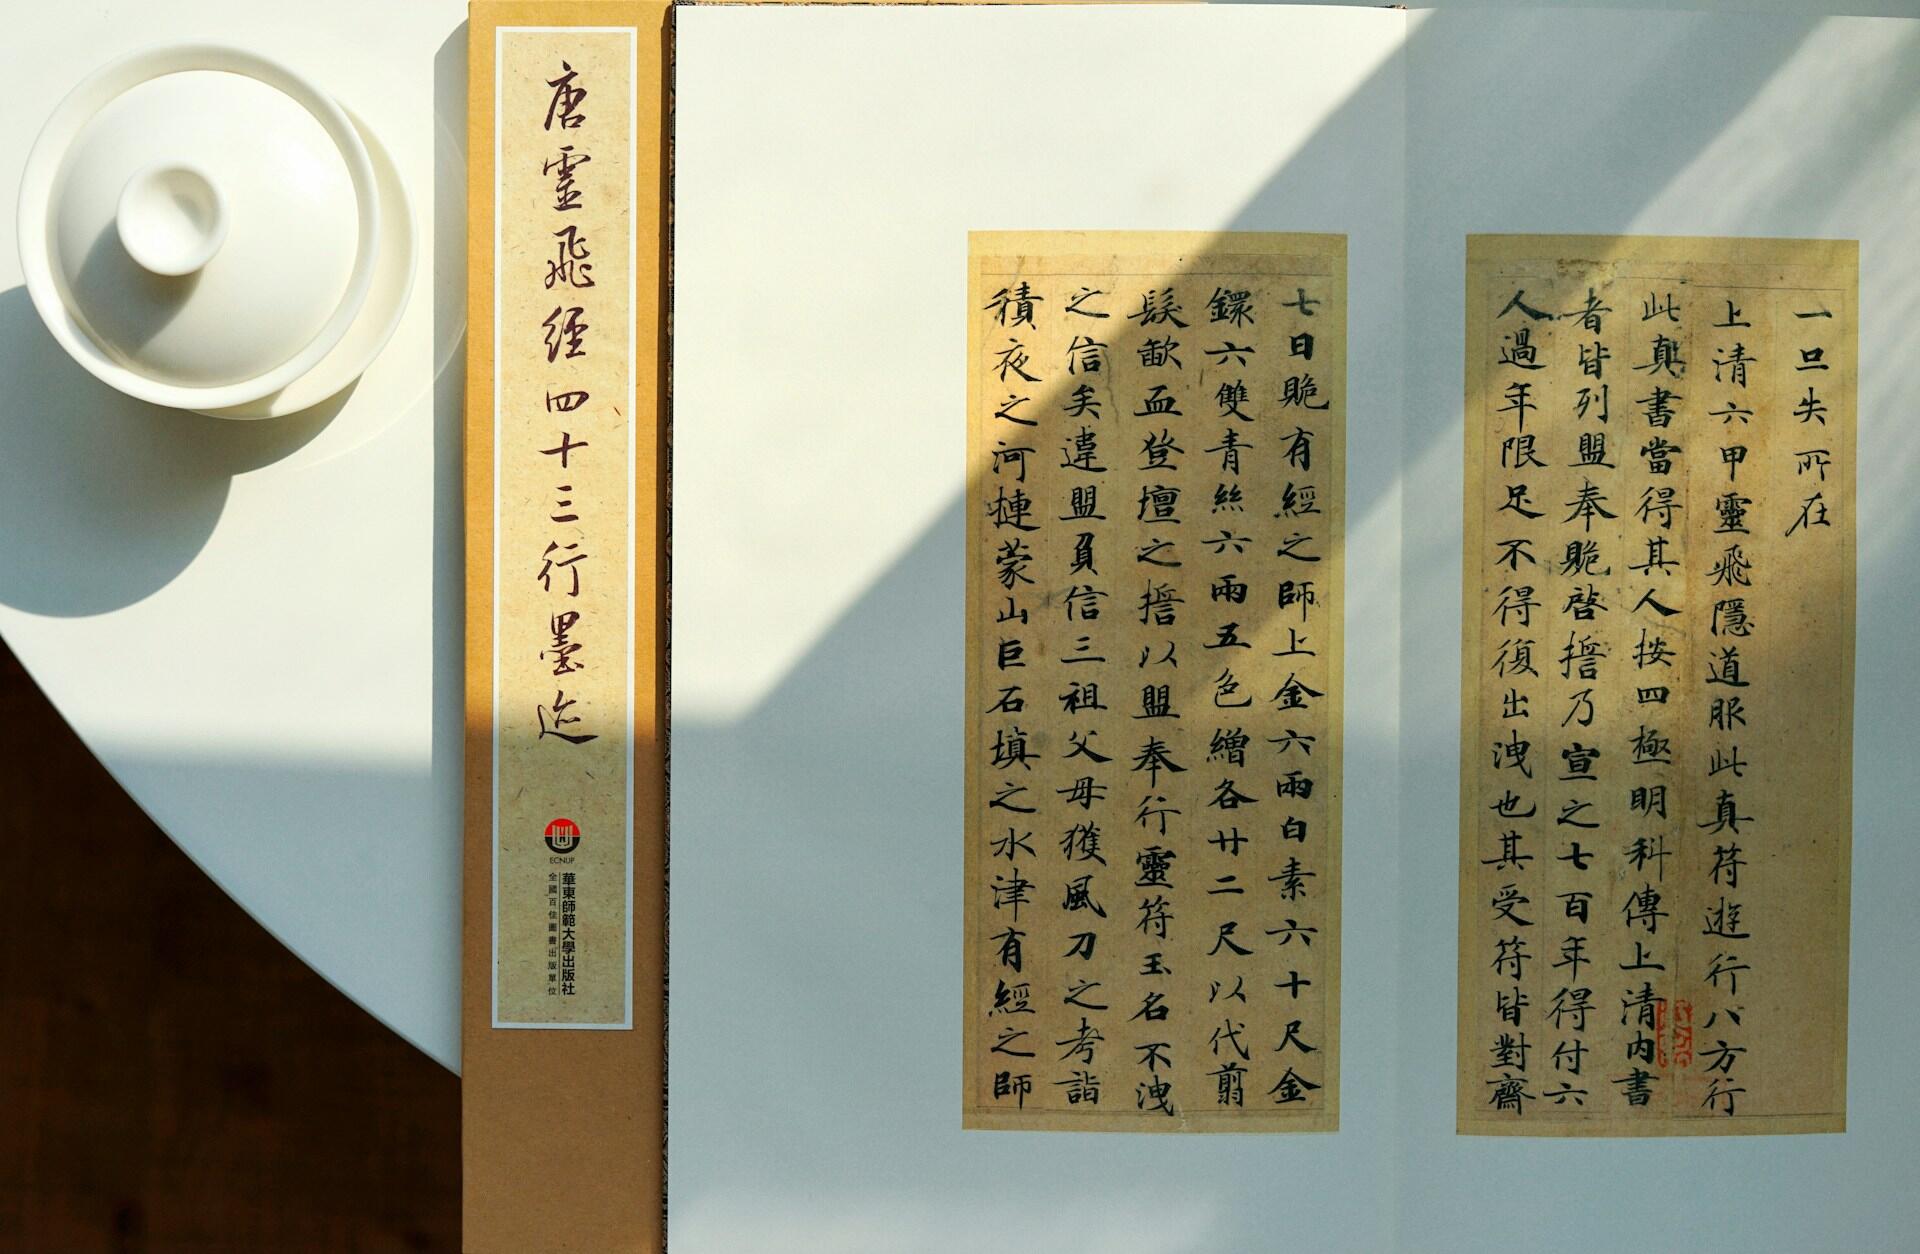 唐靈飛經四十三行墨迹
ECNUP
華東師範大學出版社
全國百佳圖書出版單位
一旦失所在
上清六甲靈飛隱道服此真符遊行八方行
此真書當得其人按四極明科傳上清內書
者皆列盟奉䞈啓擔乃宣之七百年得付六
人過年限足不得復出洩也其受符皆對齋
七日䞈有經之師上金六兩白素六十尺金
鐶六雙青絲六兩五色繒各廿二尺以代翦
髮歃血登壇之擔以盟奉行靈符玉名不洩
之信矣違盟負信三祖父母獲風刀之考詣
積夜之河摙蒙山巨石填之水津有經之師